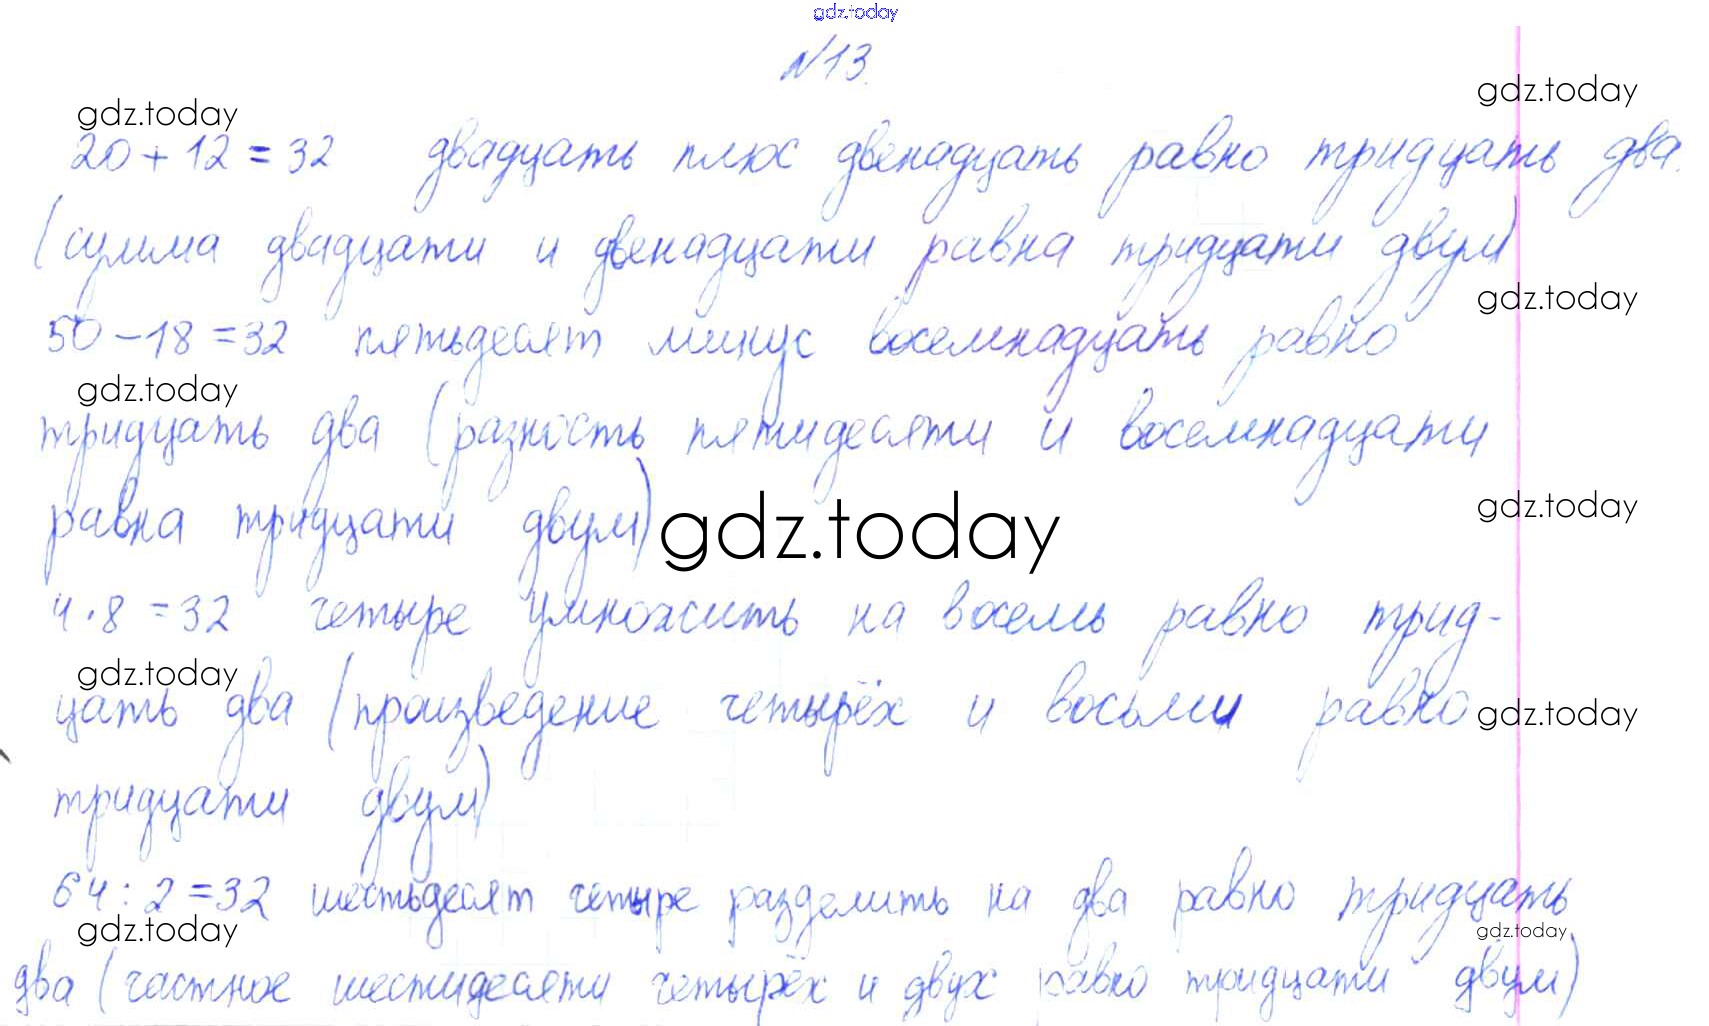 gdz.today
№13.
gdz.today
gdz.today
20 + 12 = 32 двадцать плюс двенадцать равно тридцать два.
(сумма двадцати и двенадцати равна тридцати двум)
gdz.today
50 – 18 = 32 пятьдесят минус восемнадцать равно
gdz.today
тридцать два (разность пятидесяти и восемнадцати
gdz.today
равна тридцати двум)
gdz.today
4 · 8 = 32 четыре умножить на восемь равно трид-
gdz.today
цать два (произведение четырёх и восьми равно
gdz.today
тридцати двум)
64 : 2 = 32 шестьдесят четыре разделить на два равно тридцать
gdz.today
gdz.today
два (частное шестидесяти четырёх и двух равно тридцати двум)